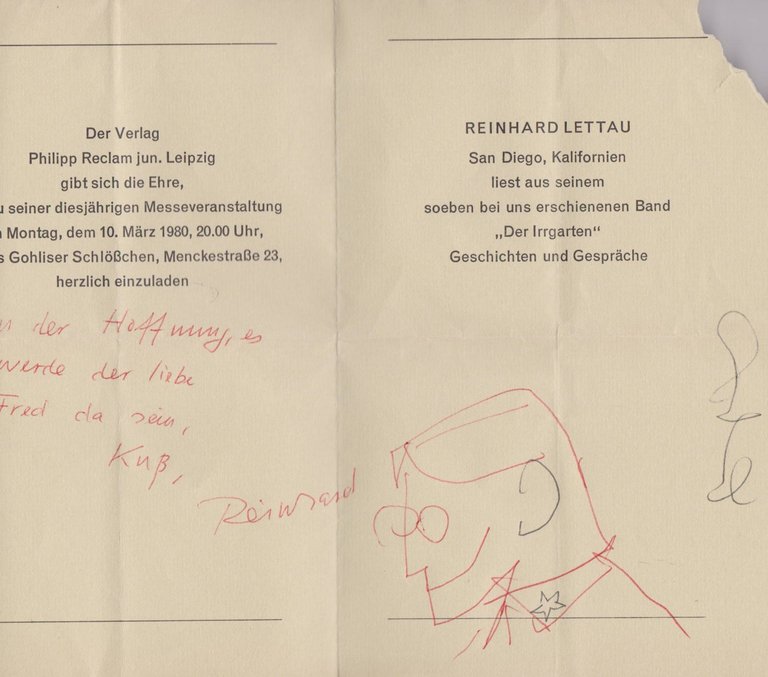 Der Verlag
Philipp Reclam jun. Leipzig
gibt sich die Ehre,
u seiner diesjährigen Messeveranstaltung
Montag, dem 10. März 1980, 20.00 Uhr,
s Gohliser Schlößchen, Menckestraße 23,
herzlich einzuladen
der Hoffnung, es
werde der liebe
Fred da sein,
Kuß,
Reinhard
REINHARD LETTAU
San Diego, Kalifornien
liest aus seinem
soeben bei uns erschienenen Band
„Der Irrgarten“
Geschichten und Gespräche